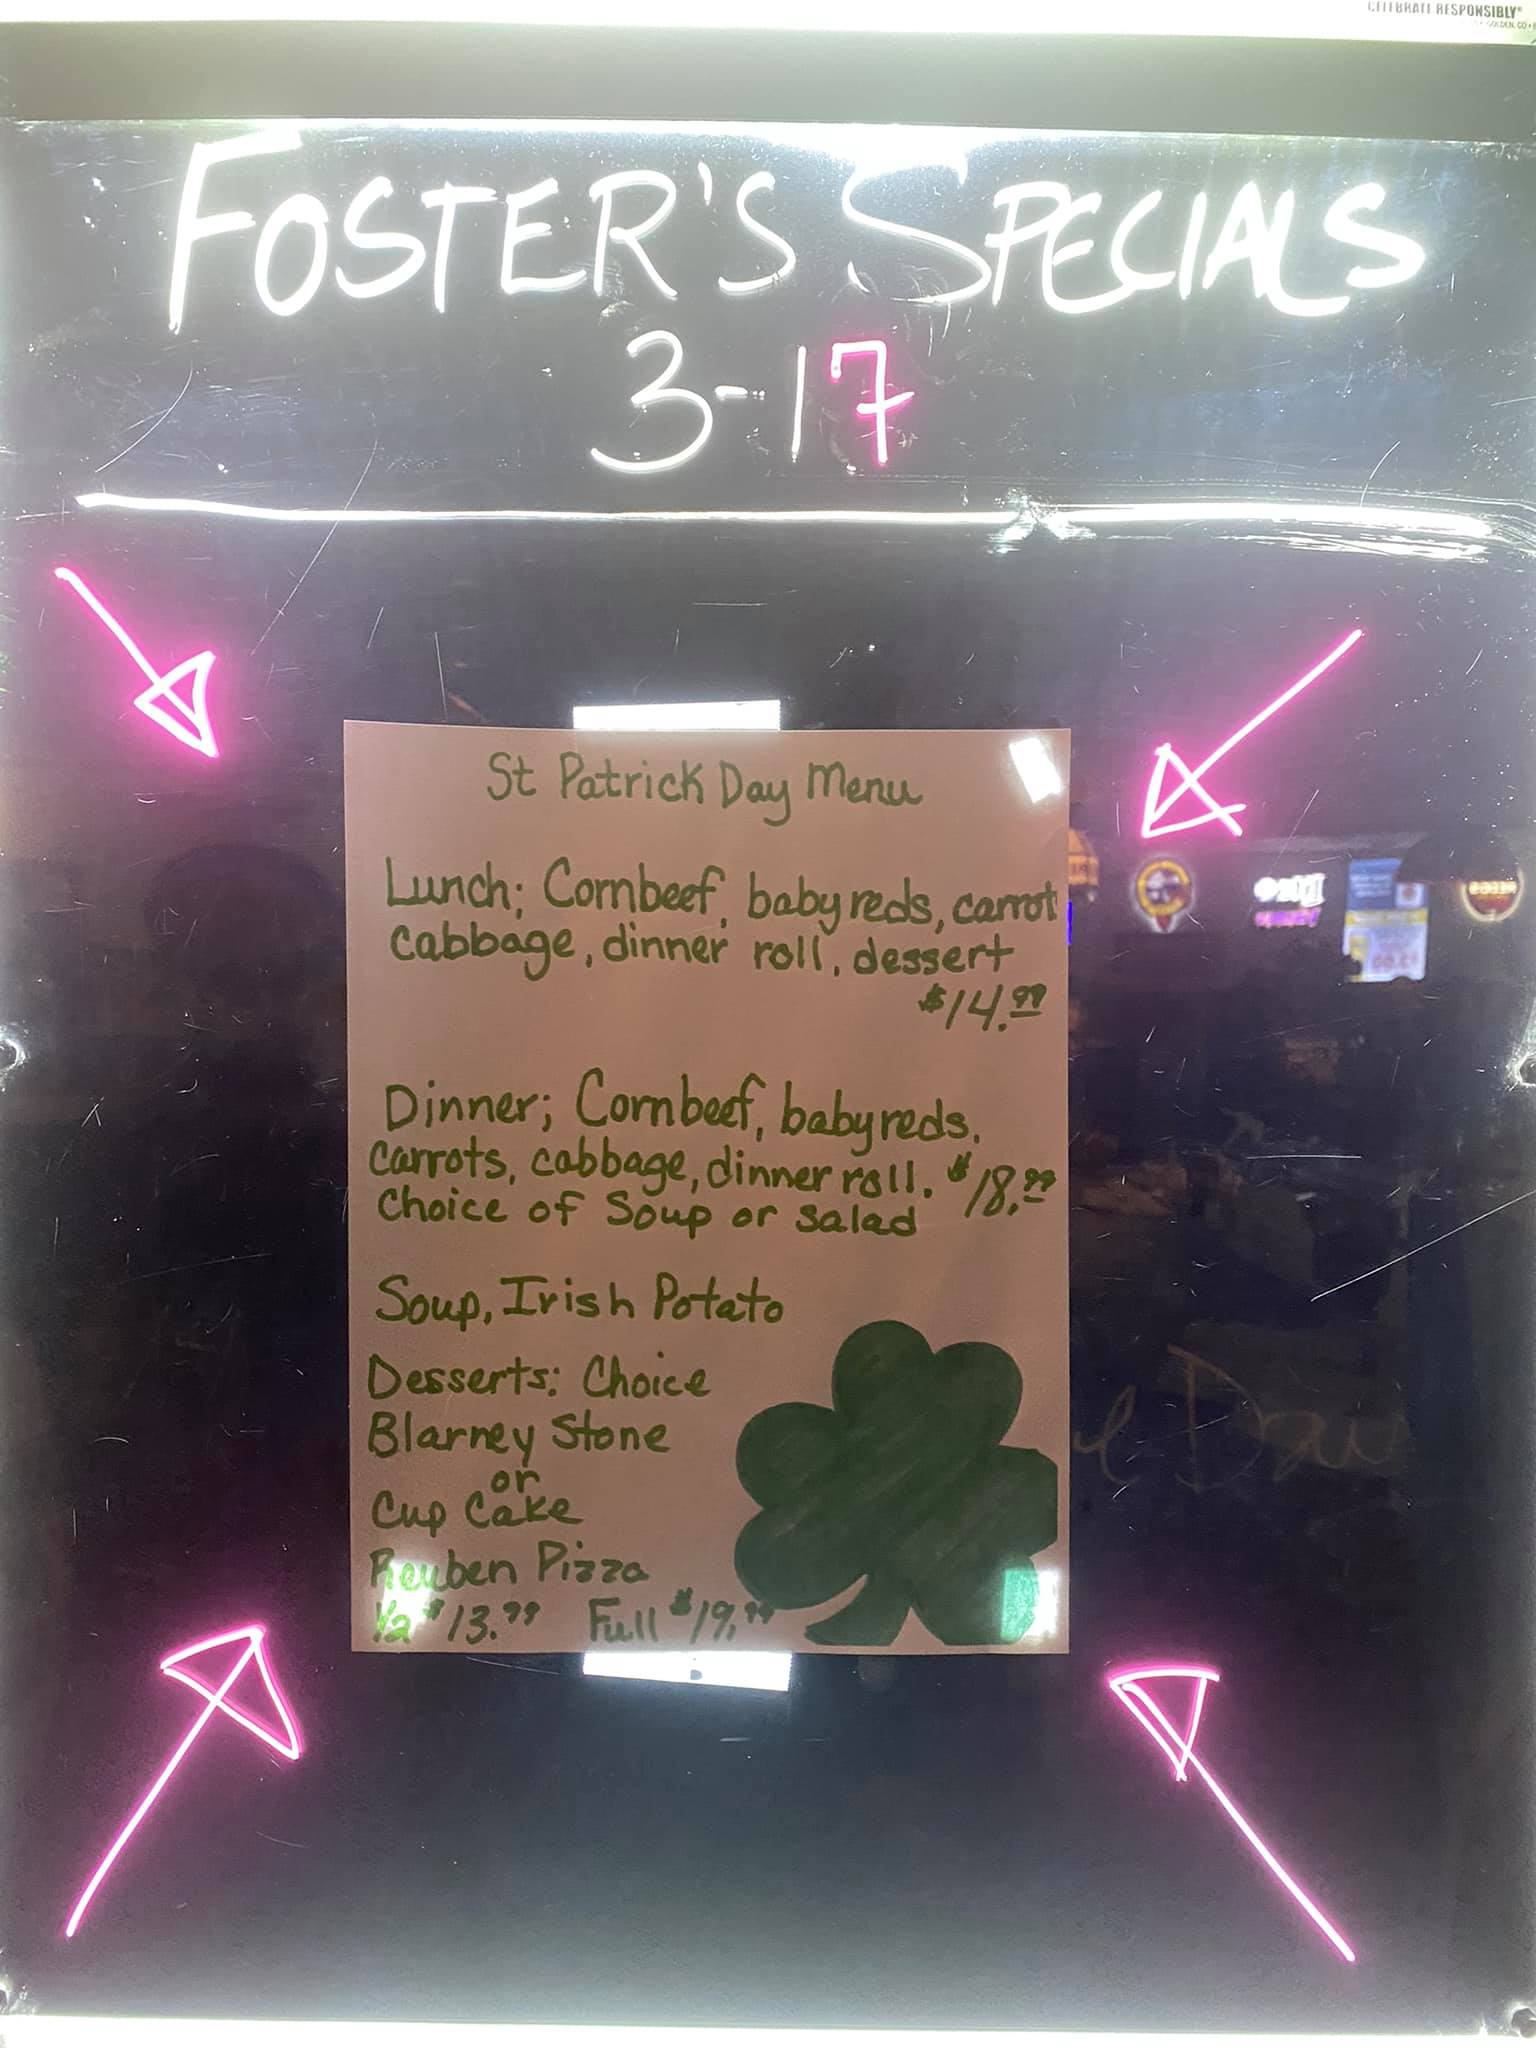 CELEBRATE RESPONSIBLY®
GOLDEN, CO
FOSTER'S SPECIALS
3-17
St Patrick Day Menu
Lunch; Cornbeef, baby reds, carrot
cabbage, dinner roll, dessert
$14.99
Dinner; Cornbeef, baby reds,
carrots, cabbage, dinner roll. $18.99
Choice of Soup or salad
Soup, Irish Potato
Desserts: Choice
Blarney Stone
or
Cup Cake
Reuben Pizza
1/2 $13.99 Full $19.99